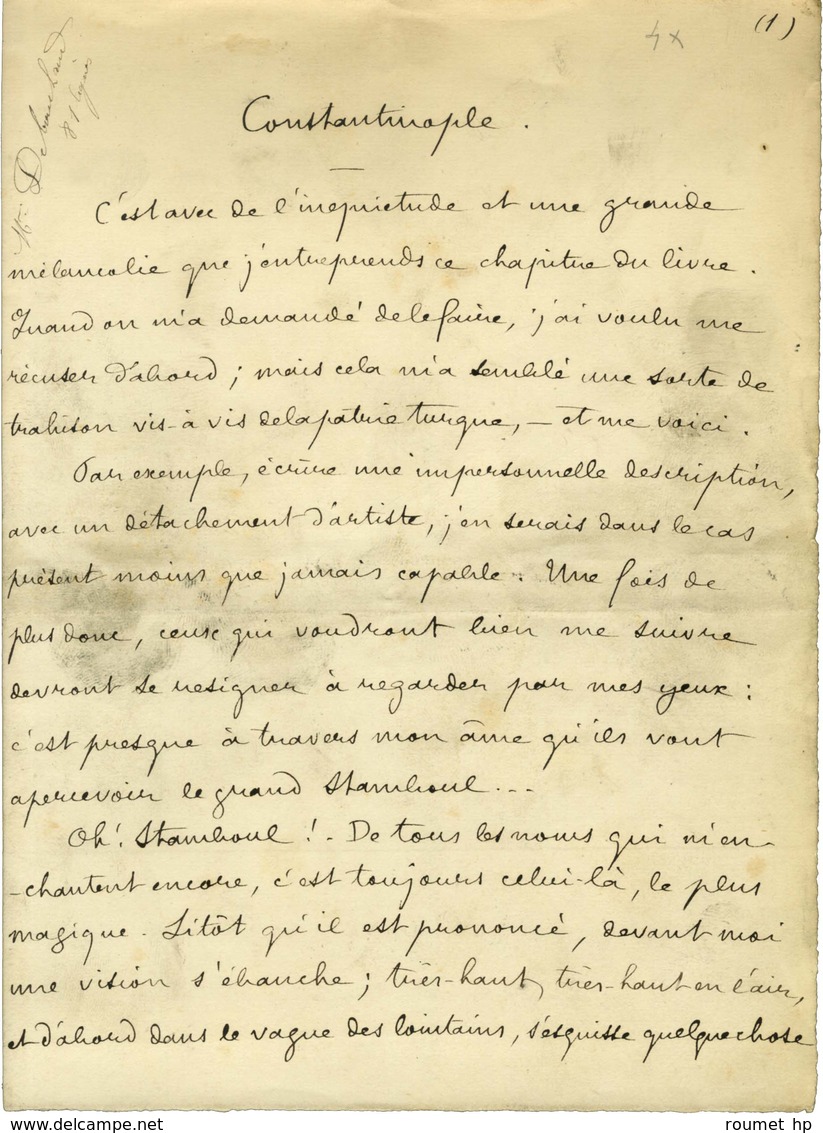 (1)
4x
Mr Debouchaud
81 lignes
Constantinople.
C'est avec de l'inquiétude et une grande
mélancolie que j'entreprends ce chapitre du livre.
Quand on m'a demandé de le faire, j'ai voulu me
récuser d'abord ; mais cela m'a semblé une sorte de
trahison vis-à vis de la patrie turque, — et me voici.
Par exemple, écrire une impersonnelle description,
avec un détachement d'artiste, j'en serais dans le cas
présent moins que jamais capable. Une fois de
plus donc, ceux qui voudront bien me suivre
devront se resigner à regarder par mes yeux :
c'est presque à travers mon âme qu'ils vont
apercevoir le grand Stamboul...
Oh! Stamboul ! - De tous les noms qui m'en-
-chantent encore, c'est toujours celui-là, le plus
magique. Sitôt qu'il est prononcé, devant moi
une vision s'ébauche ; très-haut, très-haut en l'air,
et d'abord dans le vague des lointains, s'esquisse quelque chose
www.delcampe.net
roumet hp